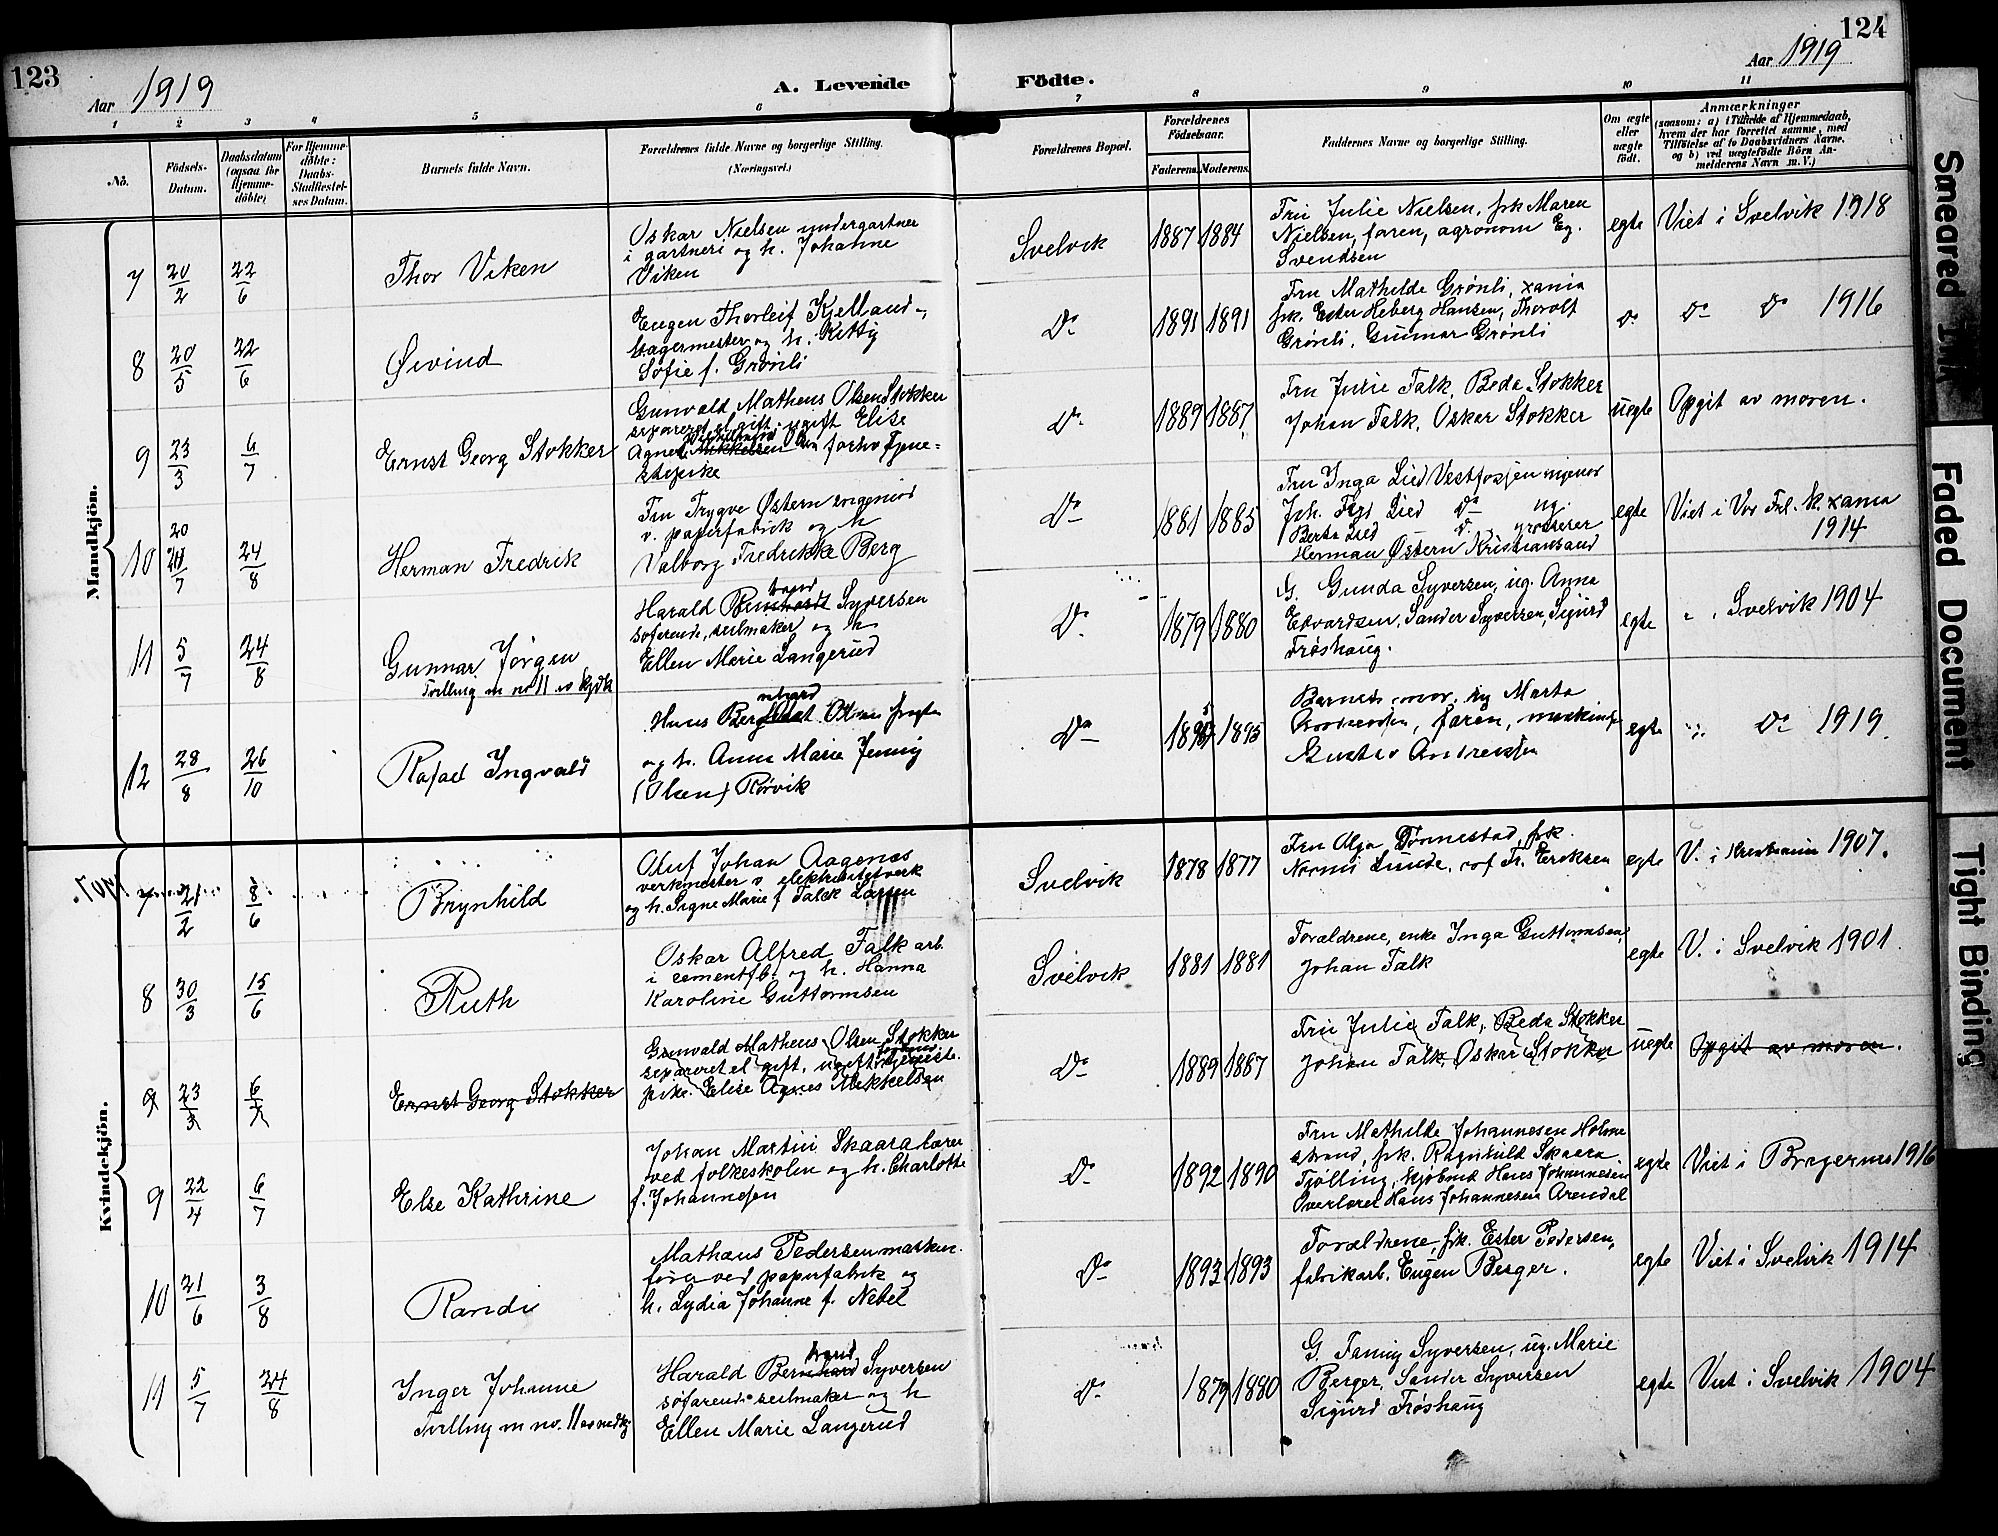 123
Aar 1919
A. Levende
Födte.
Aar 1919
124
1 2 3 4 5 6 7 8 9 10 11
No.
Födsels-
Datum.
Daabsdatum
(ogsaa for
Hjemme-
döbte)
For Hjemme-
döbte:
Daabs-
Stadfæstel-
ses Datum.
Barnets fulde Navn.
Forældrenes fulde Navne og borgerlige Stilling.
(Næringsvei.)
Forældrenes Bopæl.
Forældrenes
Födselsaar.
Faderens. Moderens.
Faddernes Navne og borgerlige Stilling.
Om ægte
eller
uægte
födt.
Anmærkninger
(saasom: a) i Tilfælde af Hjemmedaab,
hvem der har forrettet samme, med
Tilföielse af to Daabsvidners Navne,
og b) ved uægtefödte Börn An-
melderens Navn m. V.)
Mandkjön.
7 20/2 22/6 Thor Viken
Oskar Nielsen undergartner
i gartneri og h. Johanne
Viken
Svelvik 1887 1884
Fru Julie Nielsen, frk Maren
Nielsen, faren, agronom Eg.
Svendsen
egte Viet i Svelvik 1918
8 20/5 22/6 Øivind
Eugen Thorleif Kjelland-,
lagermester og h. Kitty
Sofie f. Grønli
Do 1891 1891
Fru Mathilde Grønli, xania
frk. Ester Heberg Hansen, Thorolf
Grønli, Gunnar Grønli
Do Do Do 1916
9 23/3 6/7 Ernst Georg Stokker
Gunvald Matheus Olsen Stokker
separeret el gift, ugift Elise
Agnes Mikkelsen forhv tjene-
stepike
Do 1889 1887
Fru Julie Falk, Beda Stokker
Johan Falk, Oskar Stokker
uegte Opgit av moren.
10 20/7 24/8 Herman Fredrik
Fru Trygve Østern ingeniør
v. papirfabrik og h
Valborg Fredrikke Berg
Do 1881 1885
Fru Inga Lied Vestfossen ingeniør
Joh. Lied Do ug.
Berta Lied Do grosserer
Herman Østern Kristiansand
egte Viet i Vor Frl. k. xania
1914
11 5/7 24/8 Gunnar Jørgen
Tvilling m no 11 av kvdk
Harald Bernhard Syversen
søfarende, seilmaker og h
Ellen Marie Langerud
Do 1879 1880
G. Gunda Syversen, ug. Anna
Edvardsen, Sander Syversen, Sigurd
Frøshaug.
egte " , Svelvik 1904
12 28/8 26/10 Rafael Ingvald
Hans
og h. Anna Marie Jenny
(Olsen) Rørvik
Do 1895
Barnets mor, ug Marta
Andresen, faren, maskinist
Gustav Andresen
egte " Do 1919.
Kvindekjön.
7 21/2 8/6 Brynhild
Oluf Johan Aagenæs
verkmester v. elektrisitetverk
og h. Signe Marie f. Falck Larsen
Svelvik 1878 1877
Fru Olga Tønnestad, frk.
Nanni Lunde, rof Fr. Eriksen
egte V. i Kristiania 1907.
8 30/3 15/6 Ruth
Oskar Alfred Falk arb.
i cementfb. og h. Hanna
Karoline Guttormsen
Svelvik 1881 1881
Forældrene, enke Inga Guttormsen,
Johan Falk
egte V. i Svelvik 1901.
9 23/3 6/7 Ernst Georg Stokker
Gunvald Matheus Olsen Stokker
separeret el gift, ugift forhenv tjeneste-
pike. Elise Agnes Mikkelsen
Do 1889 1887
Fru Julie Falk, Beda Stokker
Johan Falk, Oskar Stokker
uegte Opgit av moren.
9 22/4 6/7 Else Kathrine
Johan Martin Skaara lærer
ved folkeskolen og h. Charlotte
f. Johannesen
Do 1892 1890
Fru Mathilde Johannesen Holme
strand, frk. Ragnhild Skaara
Tjølling, kjøbmd Hans Johannesen
Overlærer Hans Johannesen Arendal
egte Viet i Bragernes 1916
10 21/6 3/8 Randi
Mathæus Pedersen maskin-
fører ved papirfabrik og
h. Lydia Johanne f. Nebel
Do 1893 1893
Forældrene, frk. Ester Pedersen,
fabrikarb. Eugen Berger.
egte Viet i Svelvik 1914
11 5/7 24/8 Inger Johanne
Tvilling m no. 11 av mdkj
Harald Bernhard Syversen
søfarende seilmaker og h
Ellen Marie Langerud
Do 1879 1880
G. Fanny Syversen, ug. Marie
Berger, Sander Syversen
Sigurd Frøshaug
egte Viet i Svelvik 1904
Smeared Ink
Faded Document
Tight Binding